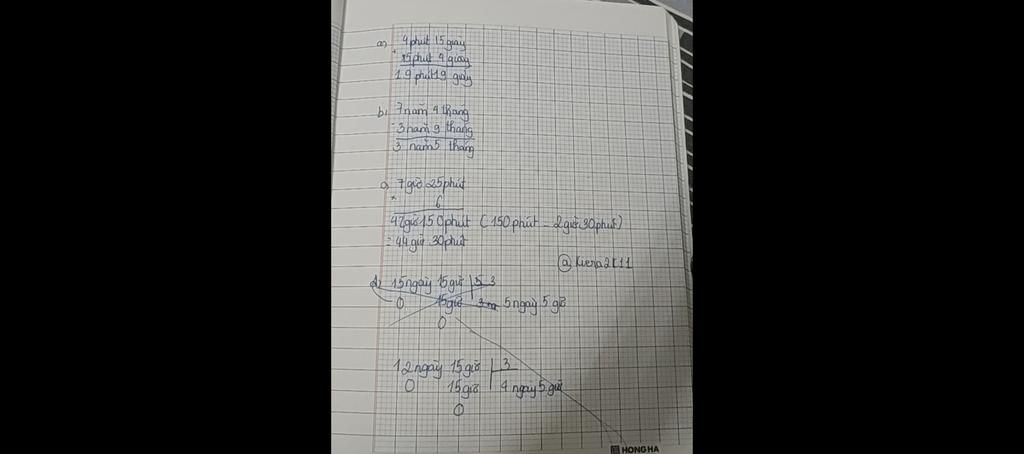 a) 4 phút 15 giây
+ 15 phút 4 giây
19 phút 19 giây
b) 7 năm 4 tháng
- 3 năm 9 tháng
3 năm 5 tháng
c) 7 giờ 25 phút
× 6
42 giờ 150 phút (150 phút = 2 giờ 30 phút)
= 44 giờ 30 phút
@ Kiera2k11
d) 15 ngày 15 giờ 3
0 15 giờ 5 ngày 5 giờ
0
12 ngày 15 giờ 3
0 15 giờ 4 ngày 5 giờ
0
HONG HA